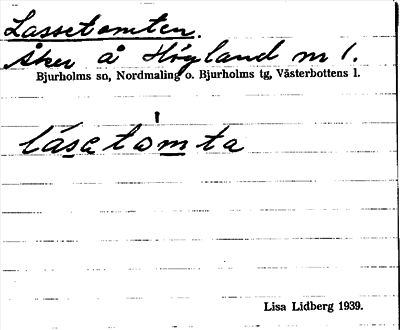 Lassetomten.
Åker å Högland m 1.
Bjurholms sn, Nordmaling o. Bjurholms tg, Västerbottens l.
lásetomta
Lisa Lidberg 1939.